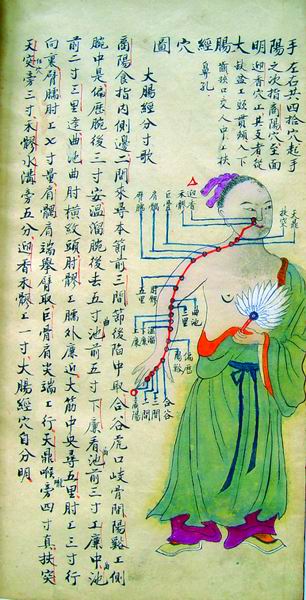 手陽明大腸經穴圖
左右共四十穴起手
之次指商陽穴至面
迎香穴止其支者從
缺盆上頸貫頰入下
齒挾口交人中上扶
鼻孔
迎香
禾髎
巨骨
肩髃
臂臑
天鼎
扶突
五里
肘髎
曲池
三里
上廉
下廉
溫溜
偏歷
陽谿
合谷
三間
二間
商陽
大腸經分寸歌
商陽食指內側邊二間來尋本節前三間節後陷中取合谷虎口岐骨間陽谿上側
腕中是偏歷腕後三寸安溫溜腕後去五寸池前五寸下廉看池前三寸上廉中池
前二寸三里逢曲池曲肘横紋頭肘髎上臑外廉近大筋中央尋五里肘上三寸行
向裏臂臑肘上七寸量肩髃肩端舉臂取巨骨肩尖端上行天鼎喉旁四寸真扶突
天突旁三寸禾髎水溝旁五分迎香禾髎上寸大腸經穴自分明